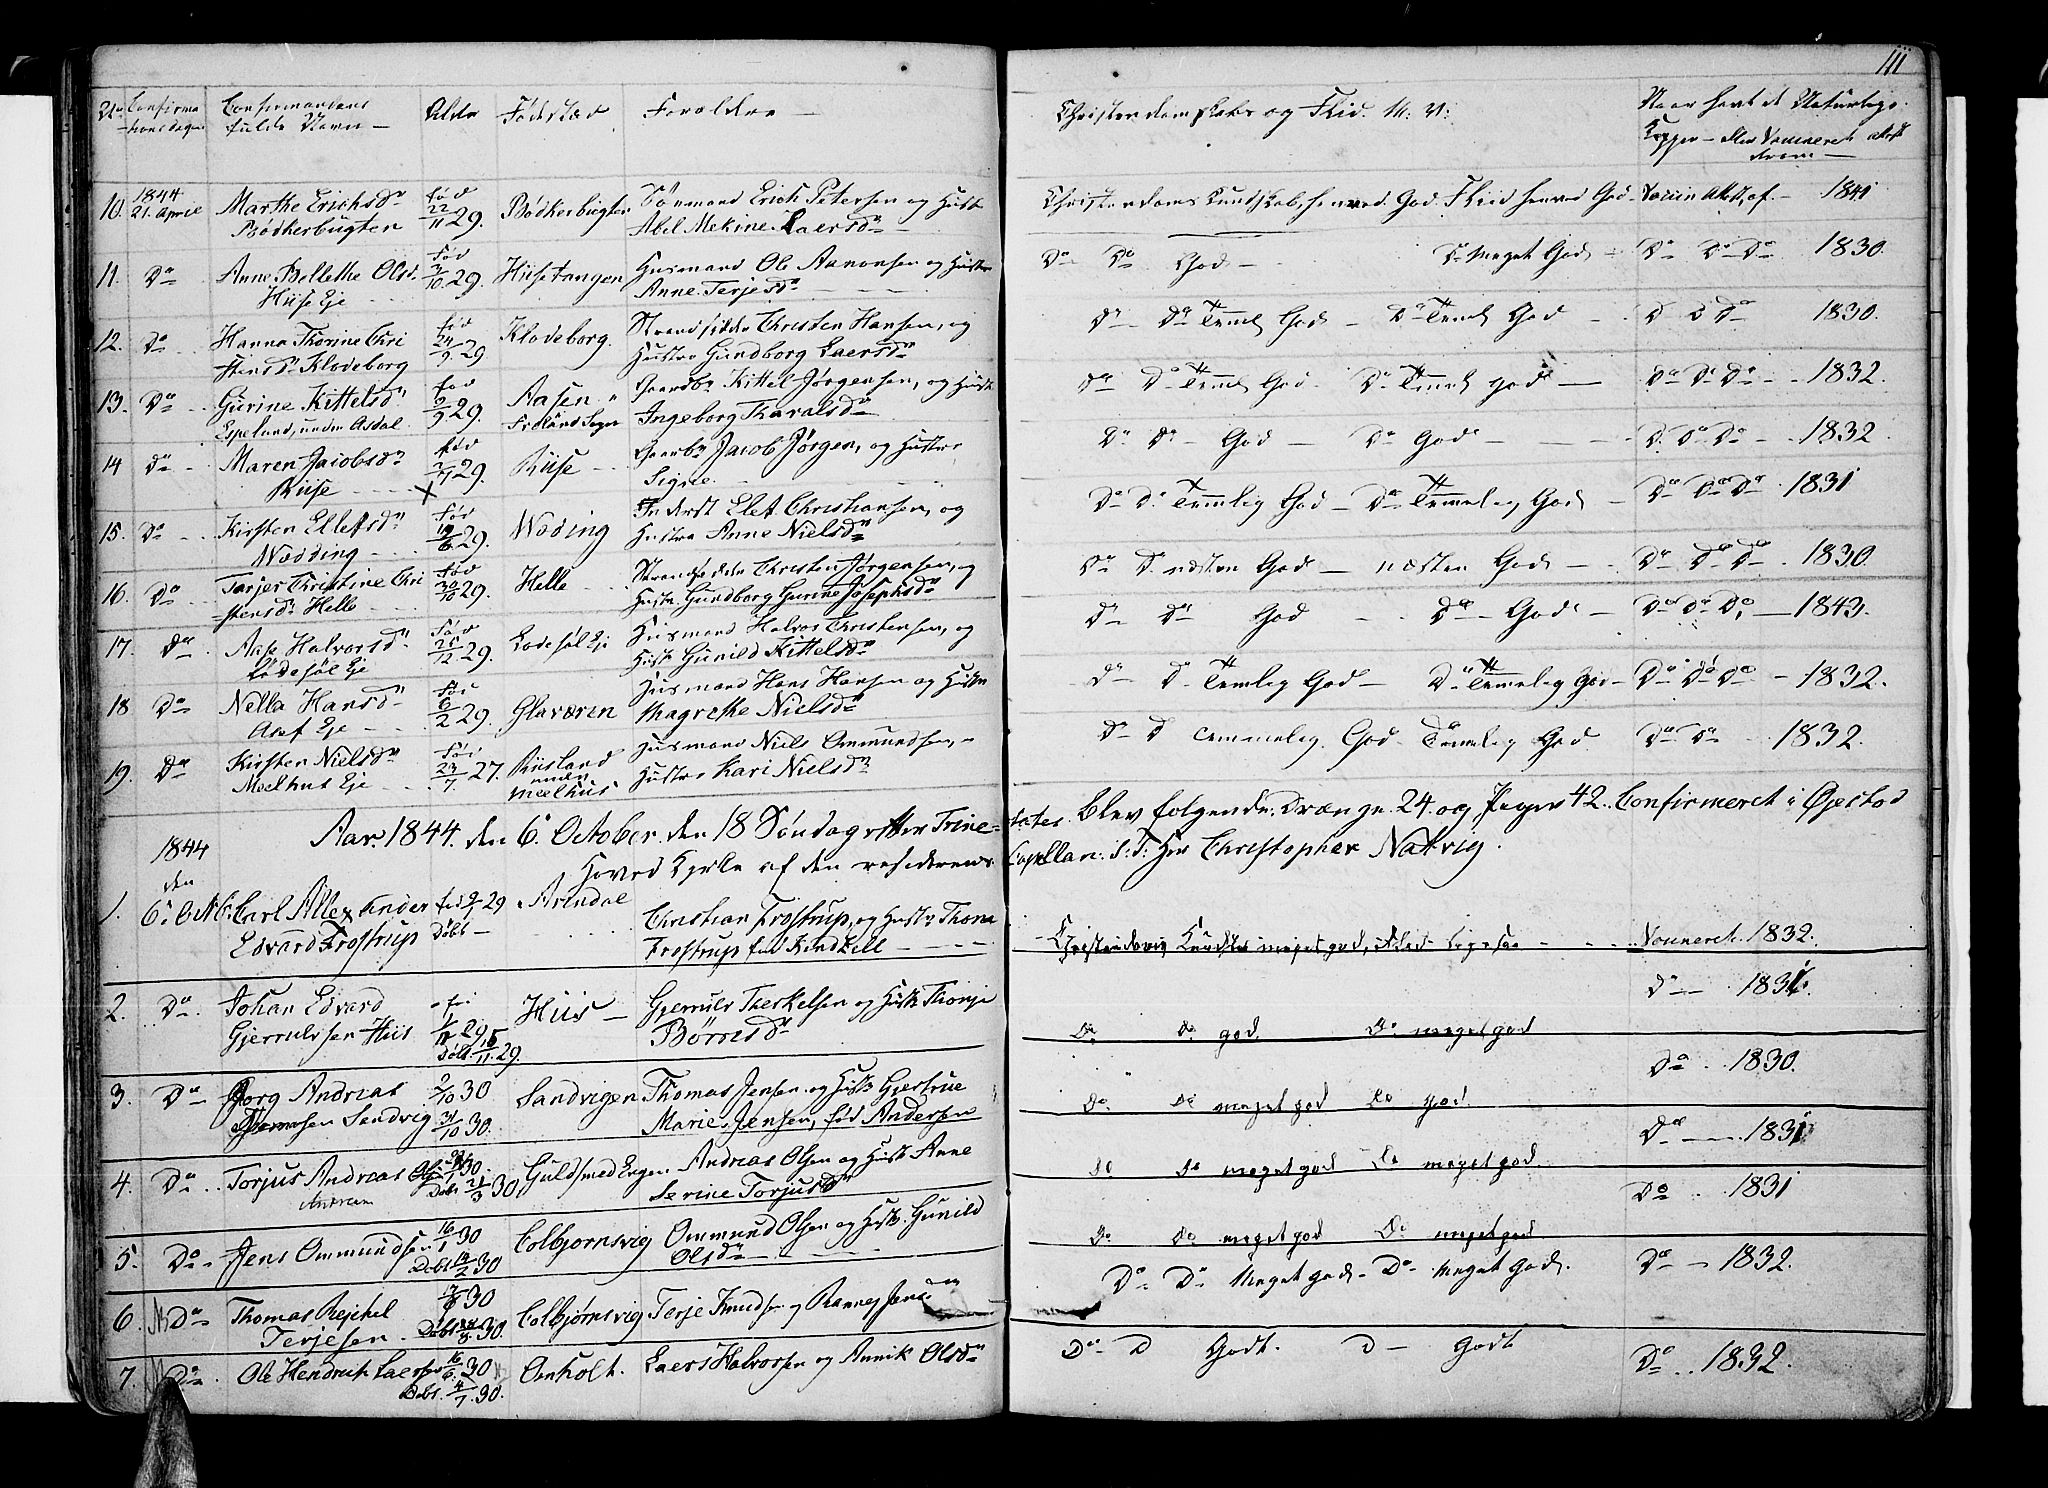 111
Confirma
tionsdagen
Confirmandens
fulde Navn —
Alder
Fødested
Forældre —
Christendomskab og Flid. M: V:
Naar havt de Naturlige
Kopper — eller Vaccineret
10. 1844 21. April Marthe Erichsdr. Bødkerbugten
fød 22/11 29. Bødkerbugten
Huusmand Erich Petersen og Hustr.
Abel Mekine Laersdr.
Christendoms Kundskab, henved God. Fliid henved God Vaccin Attest, af. — 1841
11. Do Anne Bollethe Olsd. Hiise Eje
Fød 3/10 29. Hiisetangen
Husmand Ole Aanonsen og Hustr
Anne Terjesdr
Do Do God — Do Meget God Do Do Do 1830.
12. Do Hanna Thorine Chri
stensdr Klodeborg
fød 24/9 29 Klodeborg.
Strandsidder Christen Hansen, og
Hustru Gundborg Laersdr
Do Do Teml God — Do Teml God — D D Do 1830.
13. Do Gurine Kittelsdr
Espeland, under Asdal
fød 2/9 29. Aasen
Froland Sogn
Gaardbr Kittel Jørgensen, og Hustr
Ingeborg Tharalsdr
Do Do Teml God — Do Teml god — Do Do Do — 1832.
14 Do Maren Jacobsdr
Riise
fød 29. Riise
Gaardbr Jacob Jørgen, og Hustru
Signe
Do Do — God — Do God — D. Do Do — 1832
15. Do Kirsten Ellefsdr
Nødding
Fød 19/6 29. Nøding
Inderst Elef Christiansen, og
Hustru Anne Nielsdr
Do D. Temlig God — Do Temelig God — Do Do Do 1831
16. Do Tarjer Christine Chri
stensdr Helle
Fød 30/10 29. Helle
Strandsidder Christen Jørgensen, og
Hustr Gundborg Gurine Josephsdr
Do D. næsten God — næsten God — Do Do Do 1830.
17. Do Aase Halvorsdr
Lødesøl Eje
Fød 25/12 29. Lodesøl Eje
Husmand Halvor Christensen, og
Hustr Gunild Kittelsdr
Do Do God Do God — Do Do Do — 1843.
18 Do Nella Hansdr
Asef Eje
Fød 6/2 29. Glaværen
Husmand Hans Hansen og Hustr
Magrethe Nielsdr
Do D. Temlig God — Do Temelig God — Do Do Do — 1832.
19. Do Kirsten Nielsdr
Moelhus Eje
Fød 23/7. 27. Riisland
under
Meelhus
Husmand Niels Ommundsen,
Hustru Kari Nielsdr
Do D Temmelig God — Temelig God Do Do 1832.
Aar. 1844. den 6. October. den 18 Søndag efter Trine=
tates. Blev følgende Drænge. 24. og Piger 42. Confirmeret i Øjestad
Hoved Kjerke af den residerens
Capellan: S: T: Her Christopher Natvig.
1. 1844 den 6. Oct. Carl Allexander
Edvard Frostrup
fød 2/1 29 Døbt — Arendal
Christian Frostrup, og Hustr Thona
Frostrup fød Kindzell
Christendoms Kundsk meget god, Flid ligesaa Vaccineret. 1832.
2. Do Johan Edvard
Gjerrulvsen Hiis
29 Døbt 15/11. 29. Hiis —
Gjerrulv Therkelsen og Hustr. Thonje
Børresdr
Do Do god Do meget god Do 1831.
3. Do Jorg Andreas
Thomasen Sandvig
2/10 30
31/10 30. Sandvigen
Thomas Jensen og Hustr Gjertrue
Marie Jensen, fød Andersen
Do. Do meget god Do god. Do 1830.
4. Do Torjus Andreas Olsen
Andreasen
30.
Døbt 21/3 30. Guldsmed Engen
Andreas Olsen og Hustr. Anne
Serine Torjusdr
Do Do meget god Do meget god. Do 1831
5. Do Jens Ommundsen
16/1 30
Døbt 14/2 30 Colbjornsvig
Ommund Olsen og Hustr. Gunild
Olsdr
Do Do meget god Do meget god Do 1831
6. Do Thomas Rejkel
Terjesen
30
Døbt 30. Colbjørnsvig
Terje Knudsen og Ranney Jensen
Do Do Meget god — Do Meget god. Do — 1832.
7. Do Ole Hendrik Laersen
16/6 30
Døbt. 4/7. 30. Omholt.
Laers Halvorsen og Annik Olsdr
Do D Godt. D — Godt Do 1832.